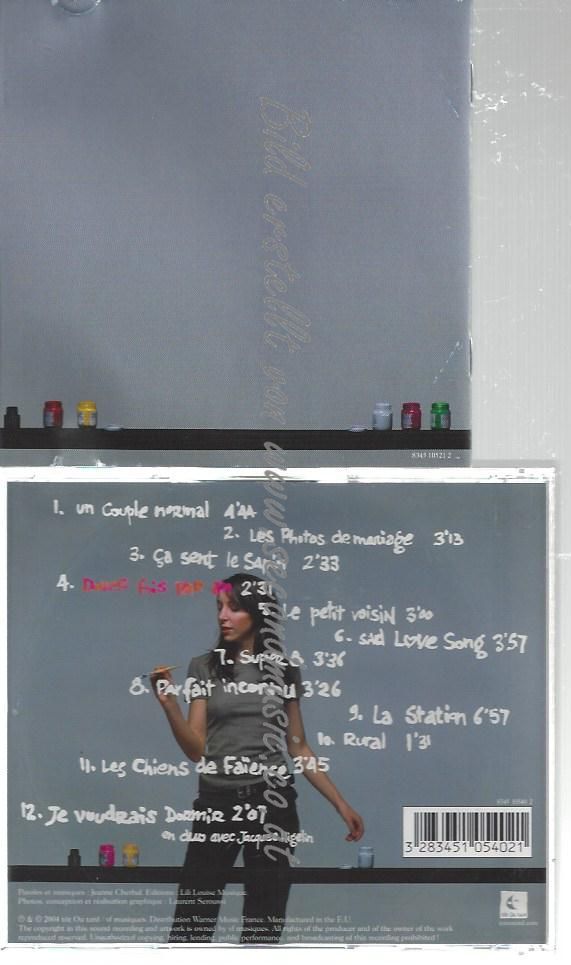 Bild erstellt von www.secondmusic.eo.lt
8345 10521 2
1. un Couple normal 4'44
2. Les Photos de mariage 3'13
3. Ça sent le Sapin 2'33
4. Douze fois par an 2'31
5. Le petit voisin 3'00
6. Sad Love Song 3'57
7. Super 8 3'36
8. Parfait inconnu 3'26
9. La Station 6'57
10. Rural 1'31
11. Les Chiens de Faïence 3'45
12. Je voudrais Dormir 2'07
en duo avec Jacques Higelin
3 283451 054021
Paroles et musiques : Jeanne Cherhal. Editions : Lili Louise Musique.
Photos, conception et réalisation graphique : Laurent Seroussi
℗ & © 2004 tôt Ou tard / vf musiques. Distribution Warner Music France. Manufactured in the E.U.
The copyright in this sound recording and artwork is owned by vf musiques. All rights of the producer and of the owner of the work
reproduced reserved. Unauthorized copying, hiring, lending, public performance, and broadcasting of this recording prohibited !
tôt Ou tard